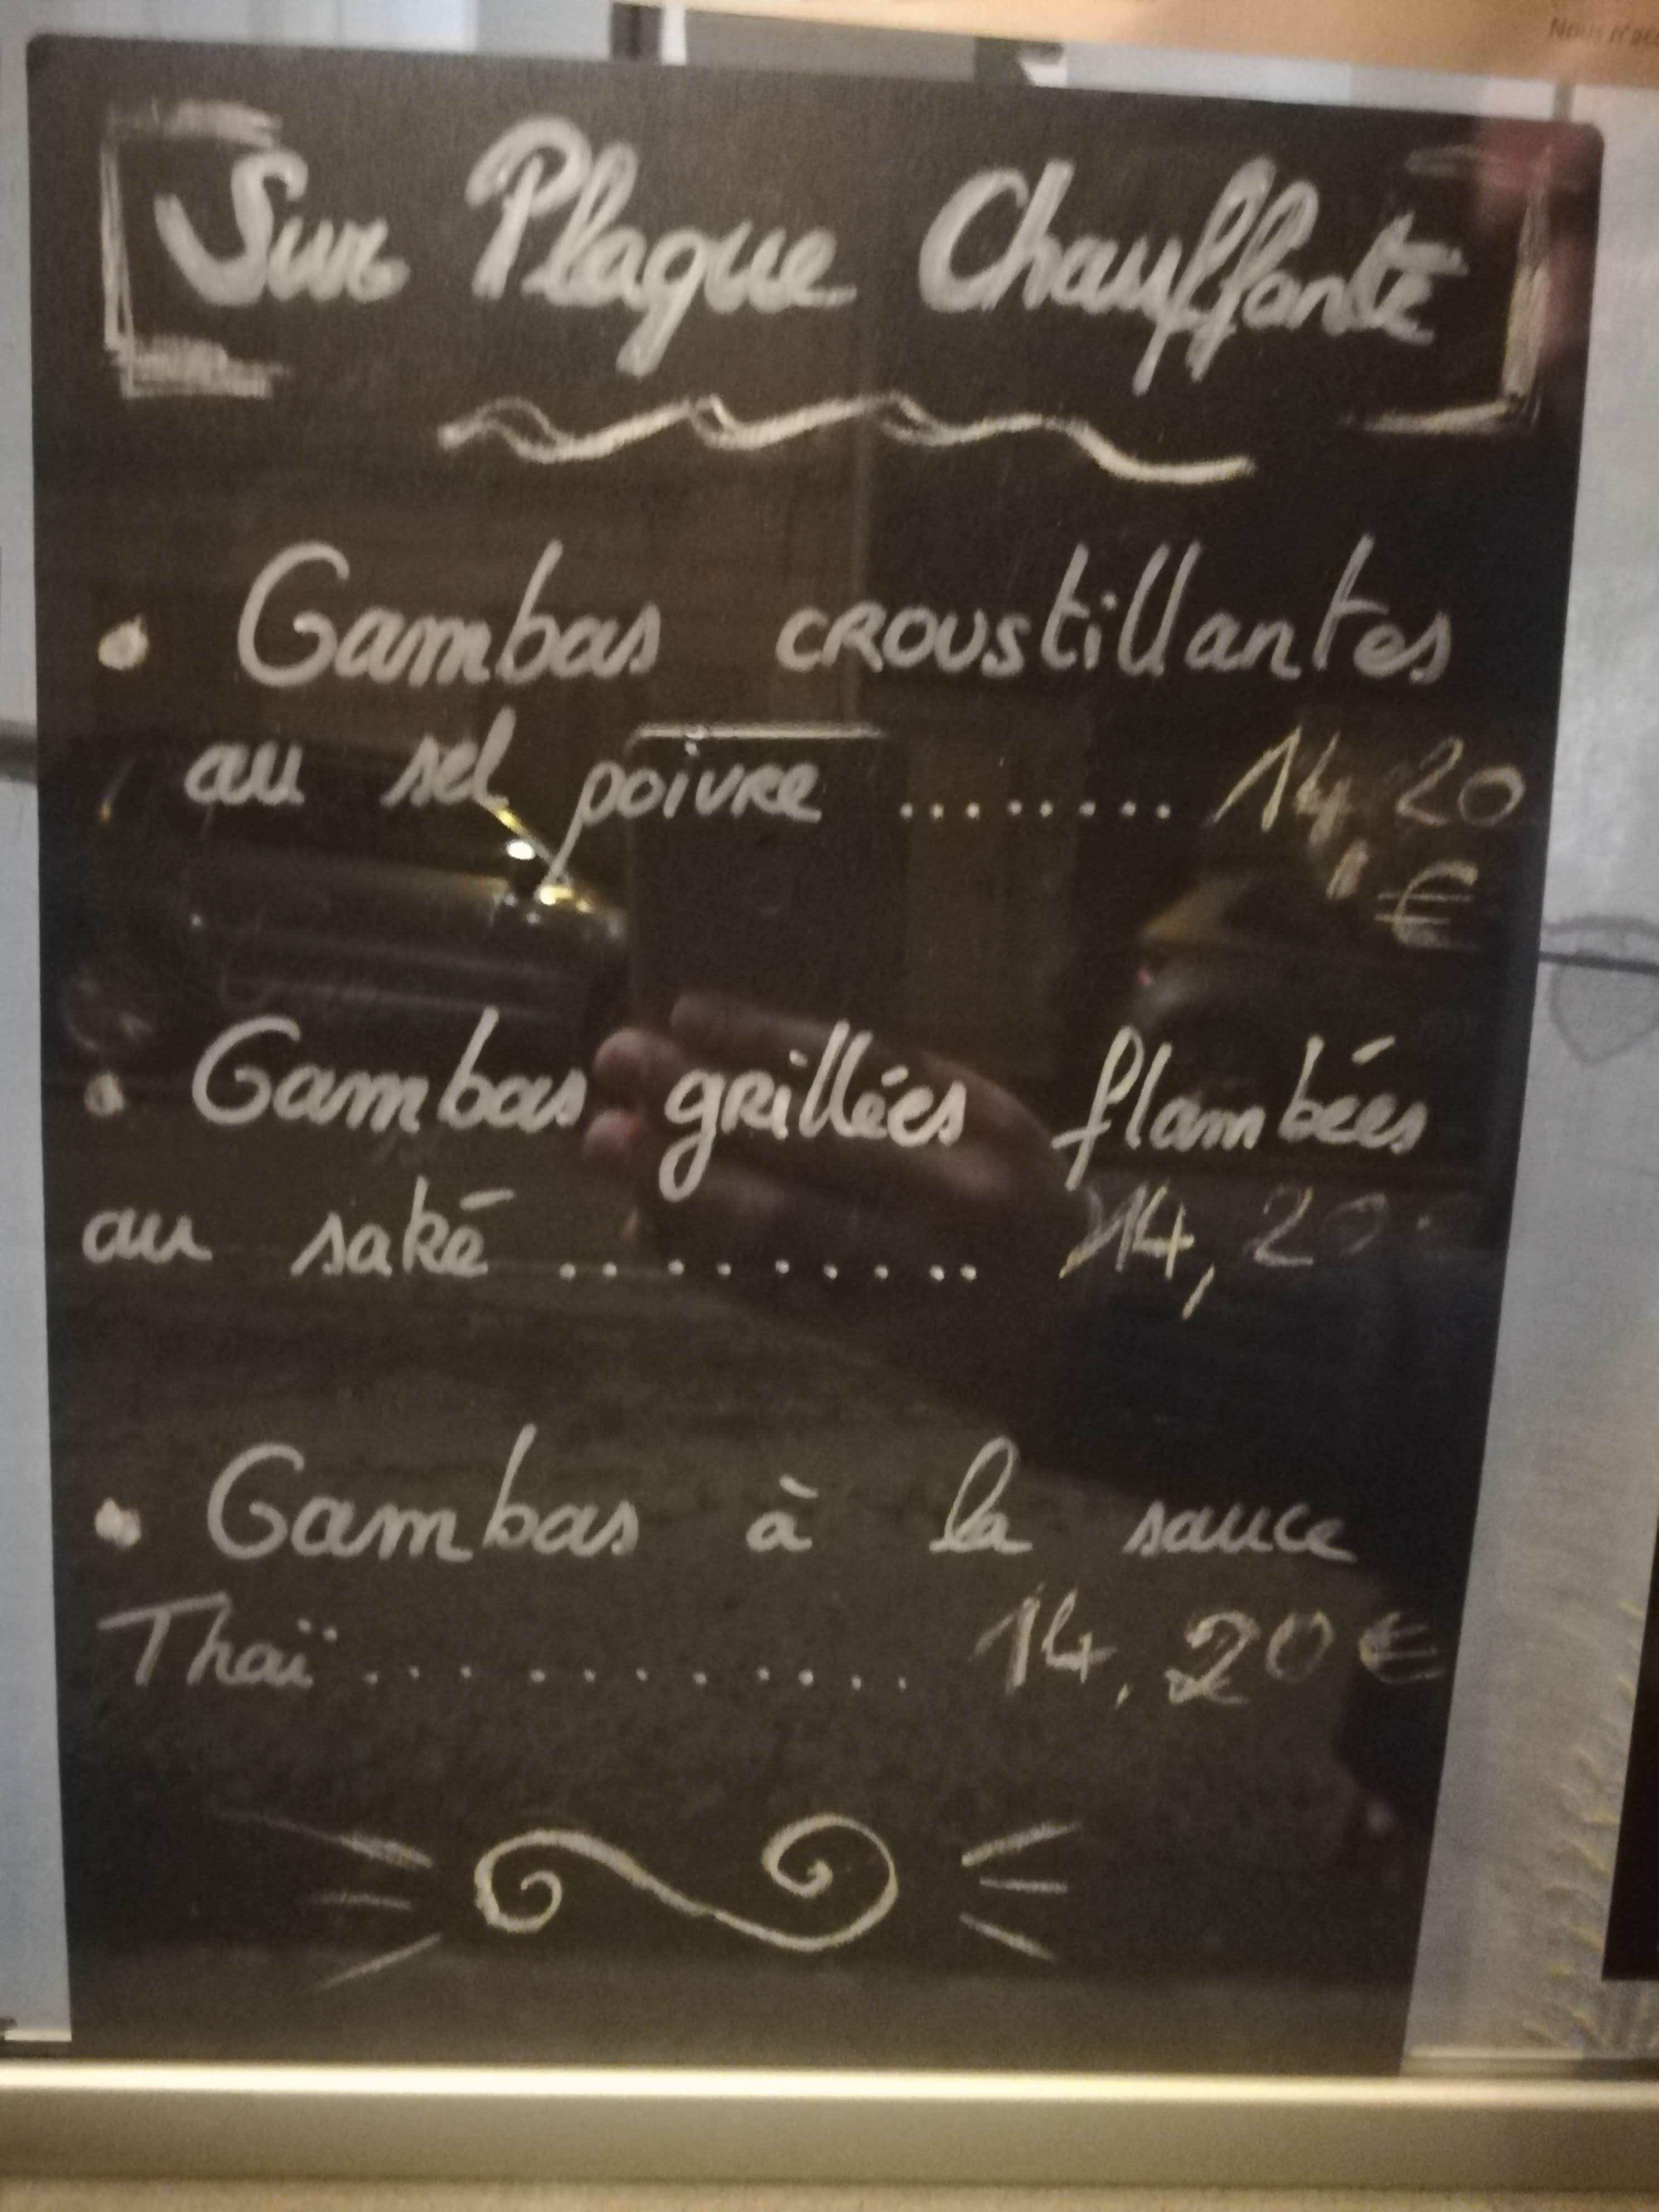 Nous n'acc
Sur Plaque Chauffante
• Gambas CROUStillantes
au sel poivre ........ 14,20
€
• Gambas grillées flambées
au saké ......... 14,20
• Gambas à la sauce
Thaï ........... 14,20€